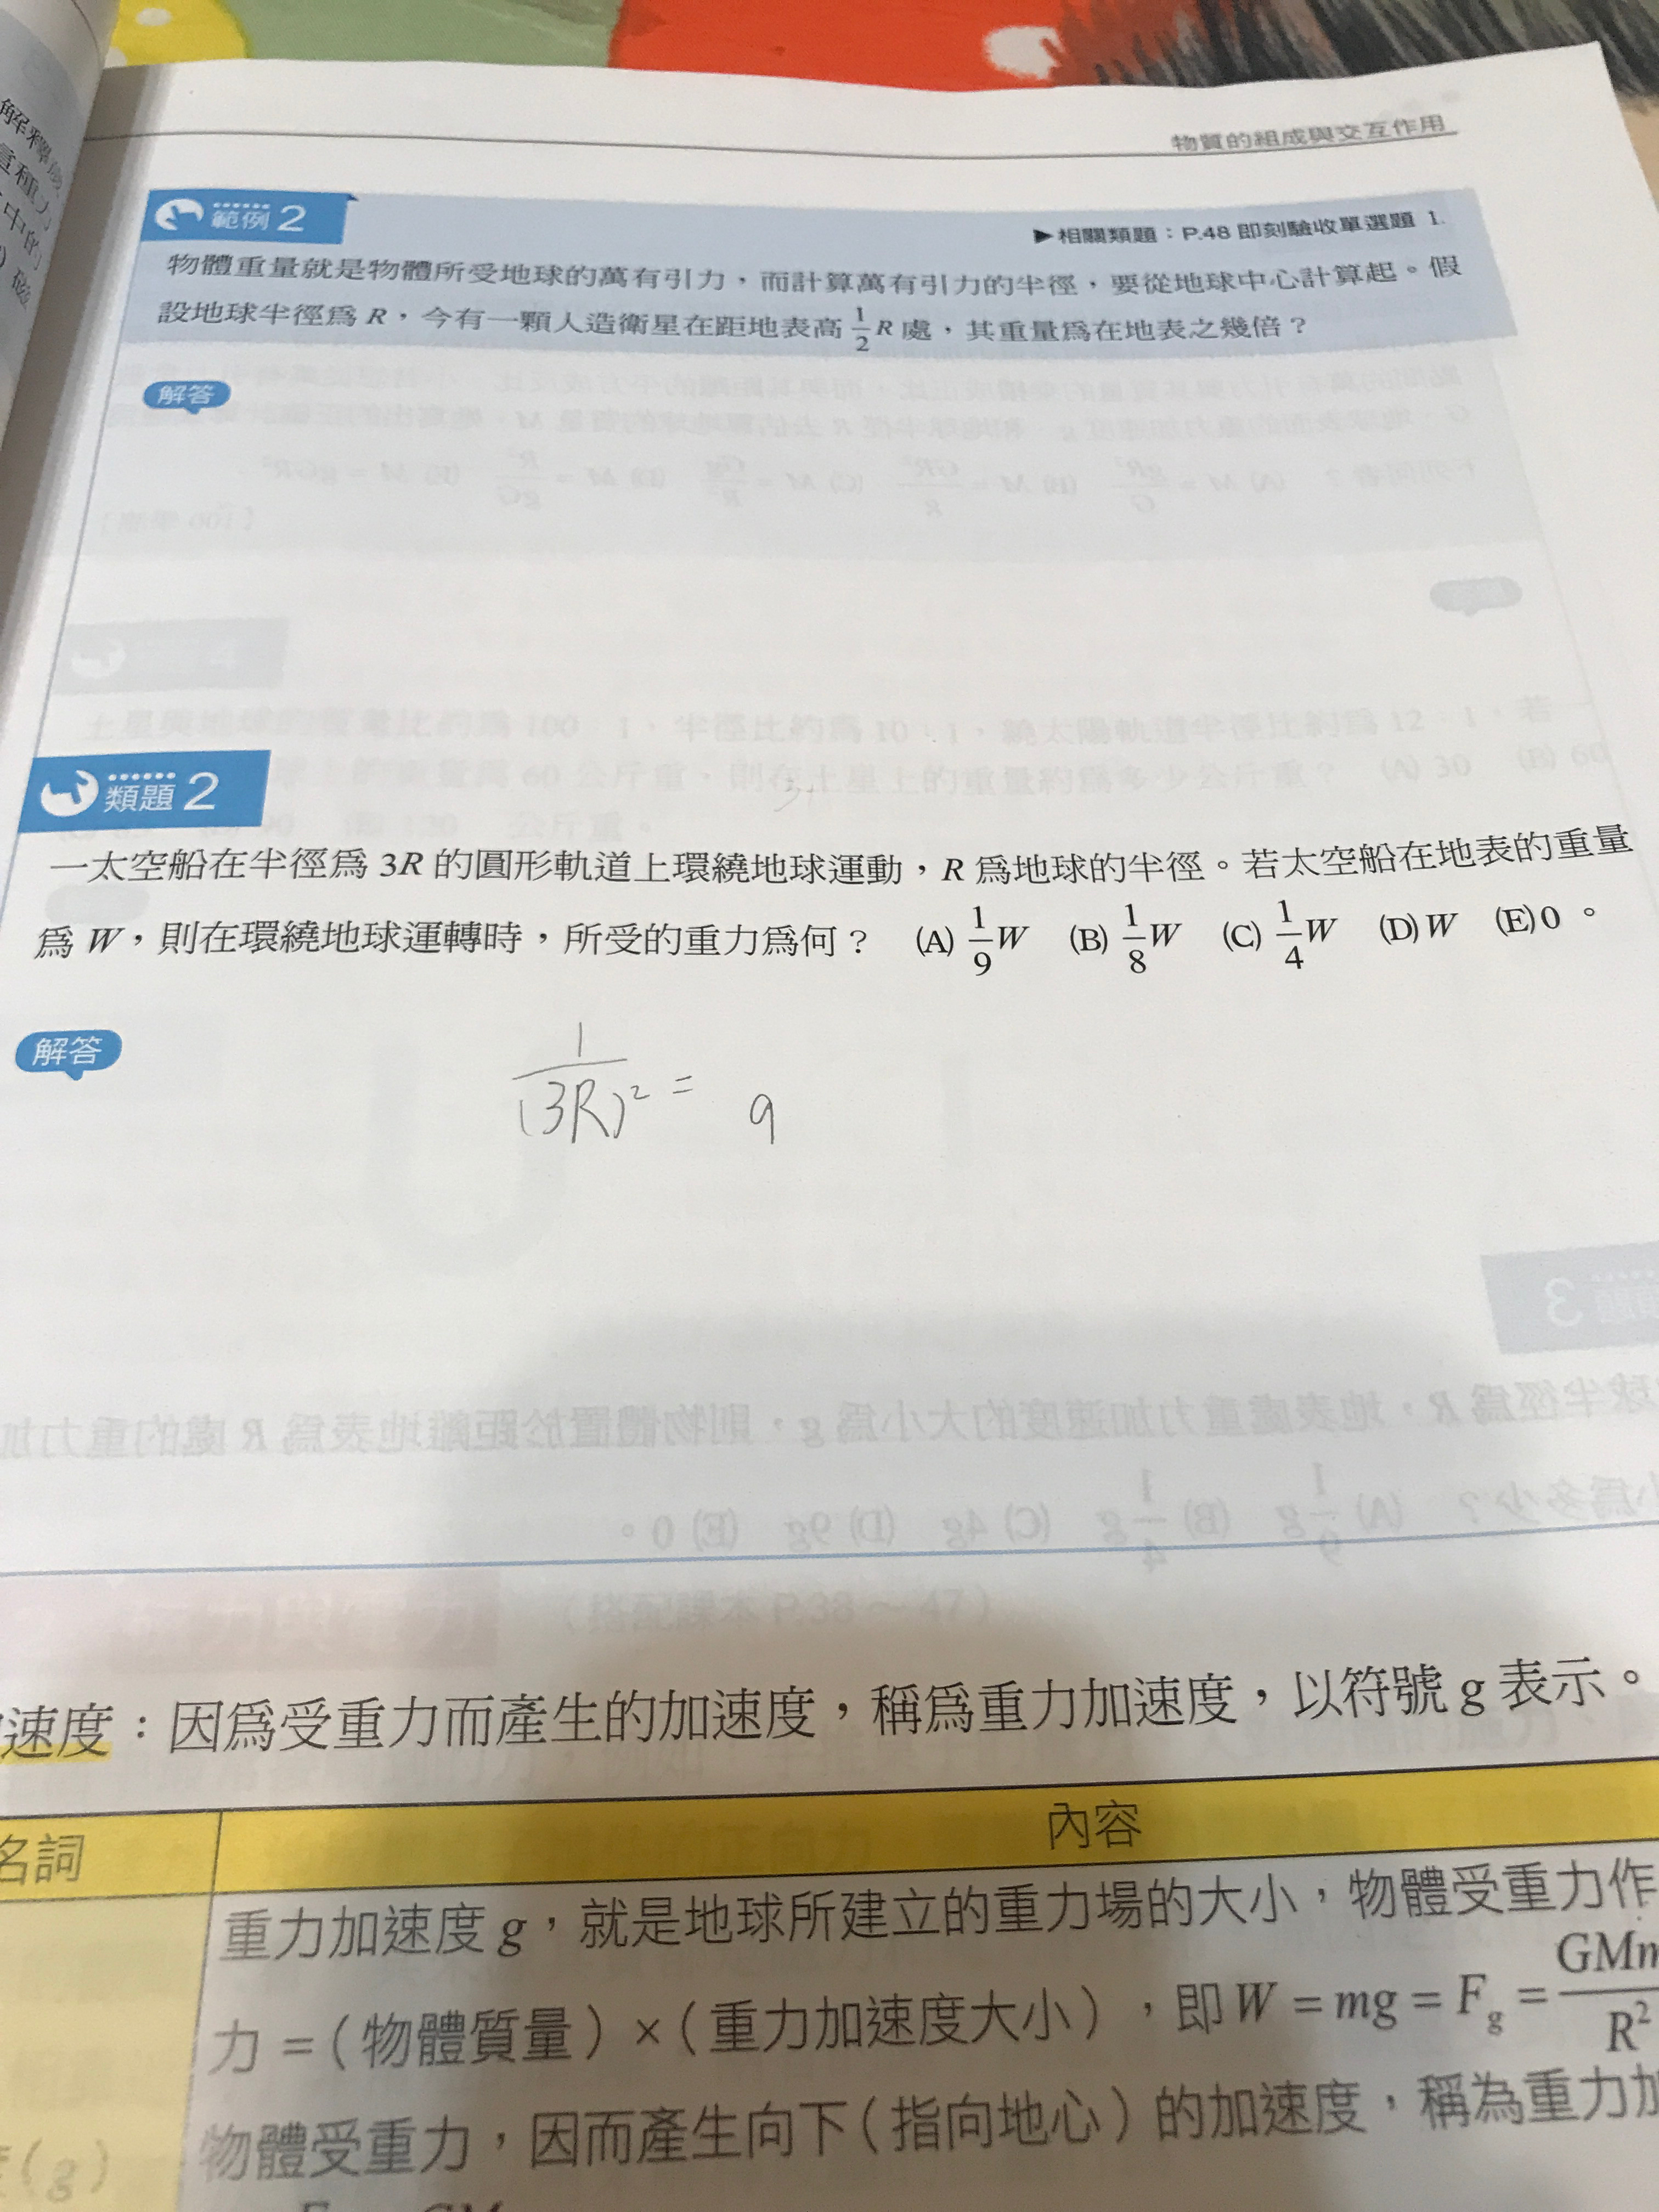 物質的組成與交互作用
範例2
▶相關類題：P.48 即刻驗收單選題 1.
物體重量就是物體所受地球的萬有引力，而計算萬有引力的半徑，要從地球中心計算起。假
設地球半徑為 R，今有一顆人造衛星在距地表高 1/2 R 處，其重量為在地表之幾倍？
解答
類題2
一太空船在半徑為 3R 的圓形軌道上環繞地球運動，R 為地球的半徑。若太空船在地表的重量
為 W，則在環繞地球運轉時，所受的重力為何？ (A) 1/9 W (B) 1/8 W (C) 1/4 W (D) W (E) 0。
解答
1/(3R)² = 9
速度：因為受重力而產生的加速度，稱為重力加速度，以符號 g 表示。
名詞 內容
重力加速度 g，就是地球所建立的重力場的大小，物體受重力作
力＝（物體質量）×（重力加速度大小），即 W = mg = Fg = GMm/R²
物體受重力，因而產生向下（指向地心）的加速度，稱為重力加
(g)